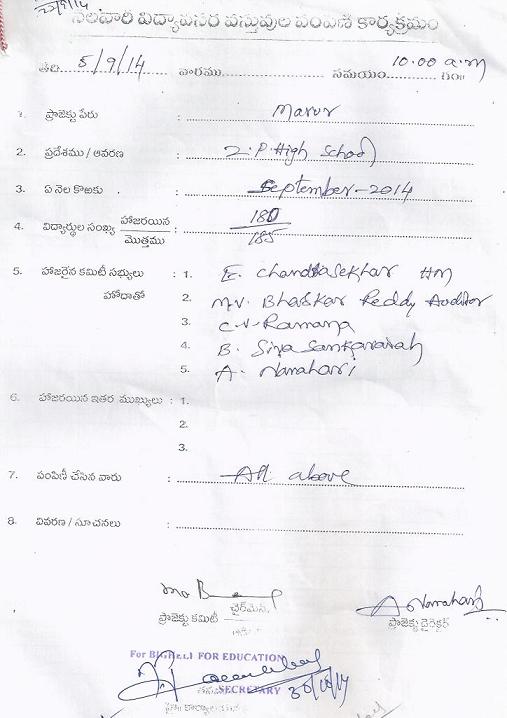 నెలవారీ విద్యావసర వస్తువుల పంపిణీ కార్యక్రమం
తేది 5/9/14 వారము సమయం 10.00 a.m గం॥
1. ప్రాజెక్టు పేరు : Marur
2. ప్రదేశము / ఆవరణ : Z.P. High School
3. ఏ నెల కొఱకు : September-2014
4. విద్యార్థుల సంఖ్య హాజరయిన : 180
మొత్తము 185
5. హాజరైన కమిటీ సభ్యులు : 1. E. Chandrasekhar HM
హోదాతో 2. M.V. Bhaskar Reddy Auditor
3. C.V. Ramana
4. B. Siva Sankaraiah
5. A. Narahari
6. హాజరయిన ఇతర ముఖ్యులు : 1.
2.
3.
7. పంపిణీ చేసిన వారు : All above
8. వివరణ / సూచనలు :
ప్రాజెక్టు కమిటీ చైర్మెన్ A Narahari
ప్రాజెక్టు డైరెక్టర్
FOR EDUCATION
SECRETARY